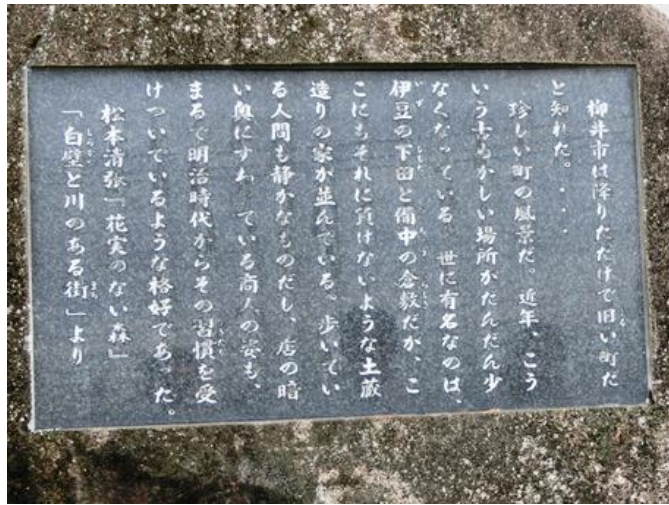 柳井市は降りただけで旧い町だ
と知れた。・・・
珍しい町の風景だ。近年、こう
いう古めかしい場所がだんだん少
なくなっている。世に有名なのは、
伊豆の下田と備中の倉敷だが、こ
こにもそれに負けないような土蔵
造りの家が並んでいる。歩いてい
る人間も静かなものだし、店の暗
い奥にすわっている商人の姿も、
まるで明治時代からその習慣を受
けついでいるような格好であった。
松本清張「花実のない森」
「白壁と川のある街」より